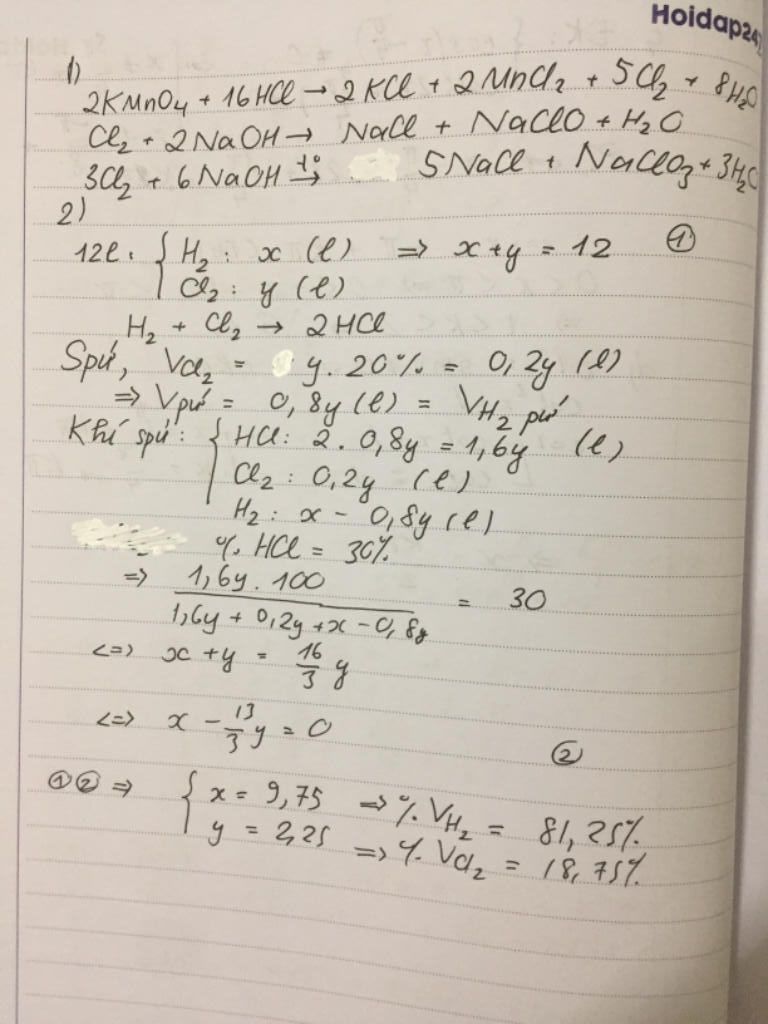 Hoidap247
1)
2KMnO4 + 16HCl → 2KCl + 2MnCl2 + 5Cl2 + 8H2O
Cl2 + 2NaOH → NaCl + NaClO + H2O
3Cl2 + 6NaOH t°→ 5NaCl + NaClO3 + 3H2O
2)
12l : { H2 : x (l) => x+y = 12 ①
Cl2 : y (l)
H2 + Cl2 → 2HCl
Spứ, VCl2 = y . 20% = 0,2y (l)
=> Vpứ = 0,8y (l) = VH2 pứ
Khí spứ : { HCl : 2 . 0,8y = 1,6y (l)
Cl2 : 0,2y (l)
H2 : x - 0,8y (l)
% HCl = 30%
=> 1,6y . 100 / 1,6y + 0,2y + x - 0,8y = 30
<=> x + y = 16/3 y
<=> x - 13/3 y = 0 ②
①② => { x = 9,75 => % VH2 = 81,25%
y = 2,25 => % VCl2 = 18,75%